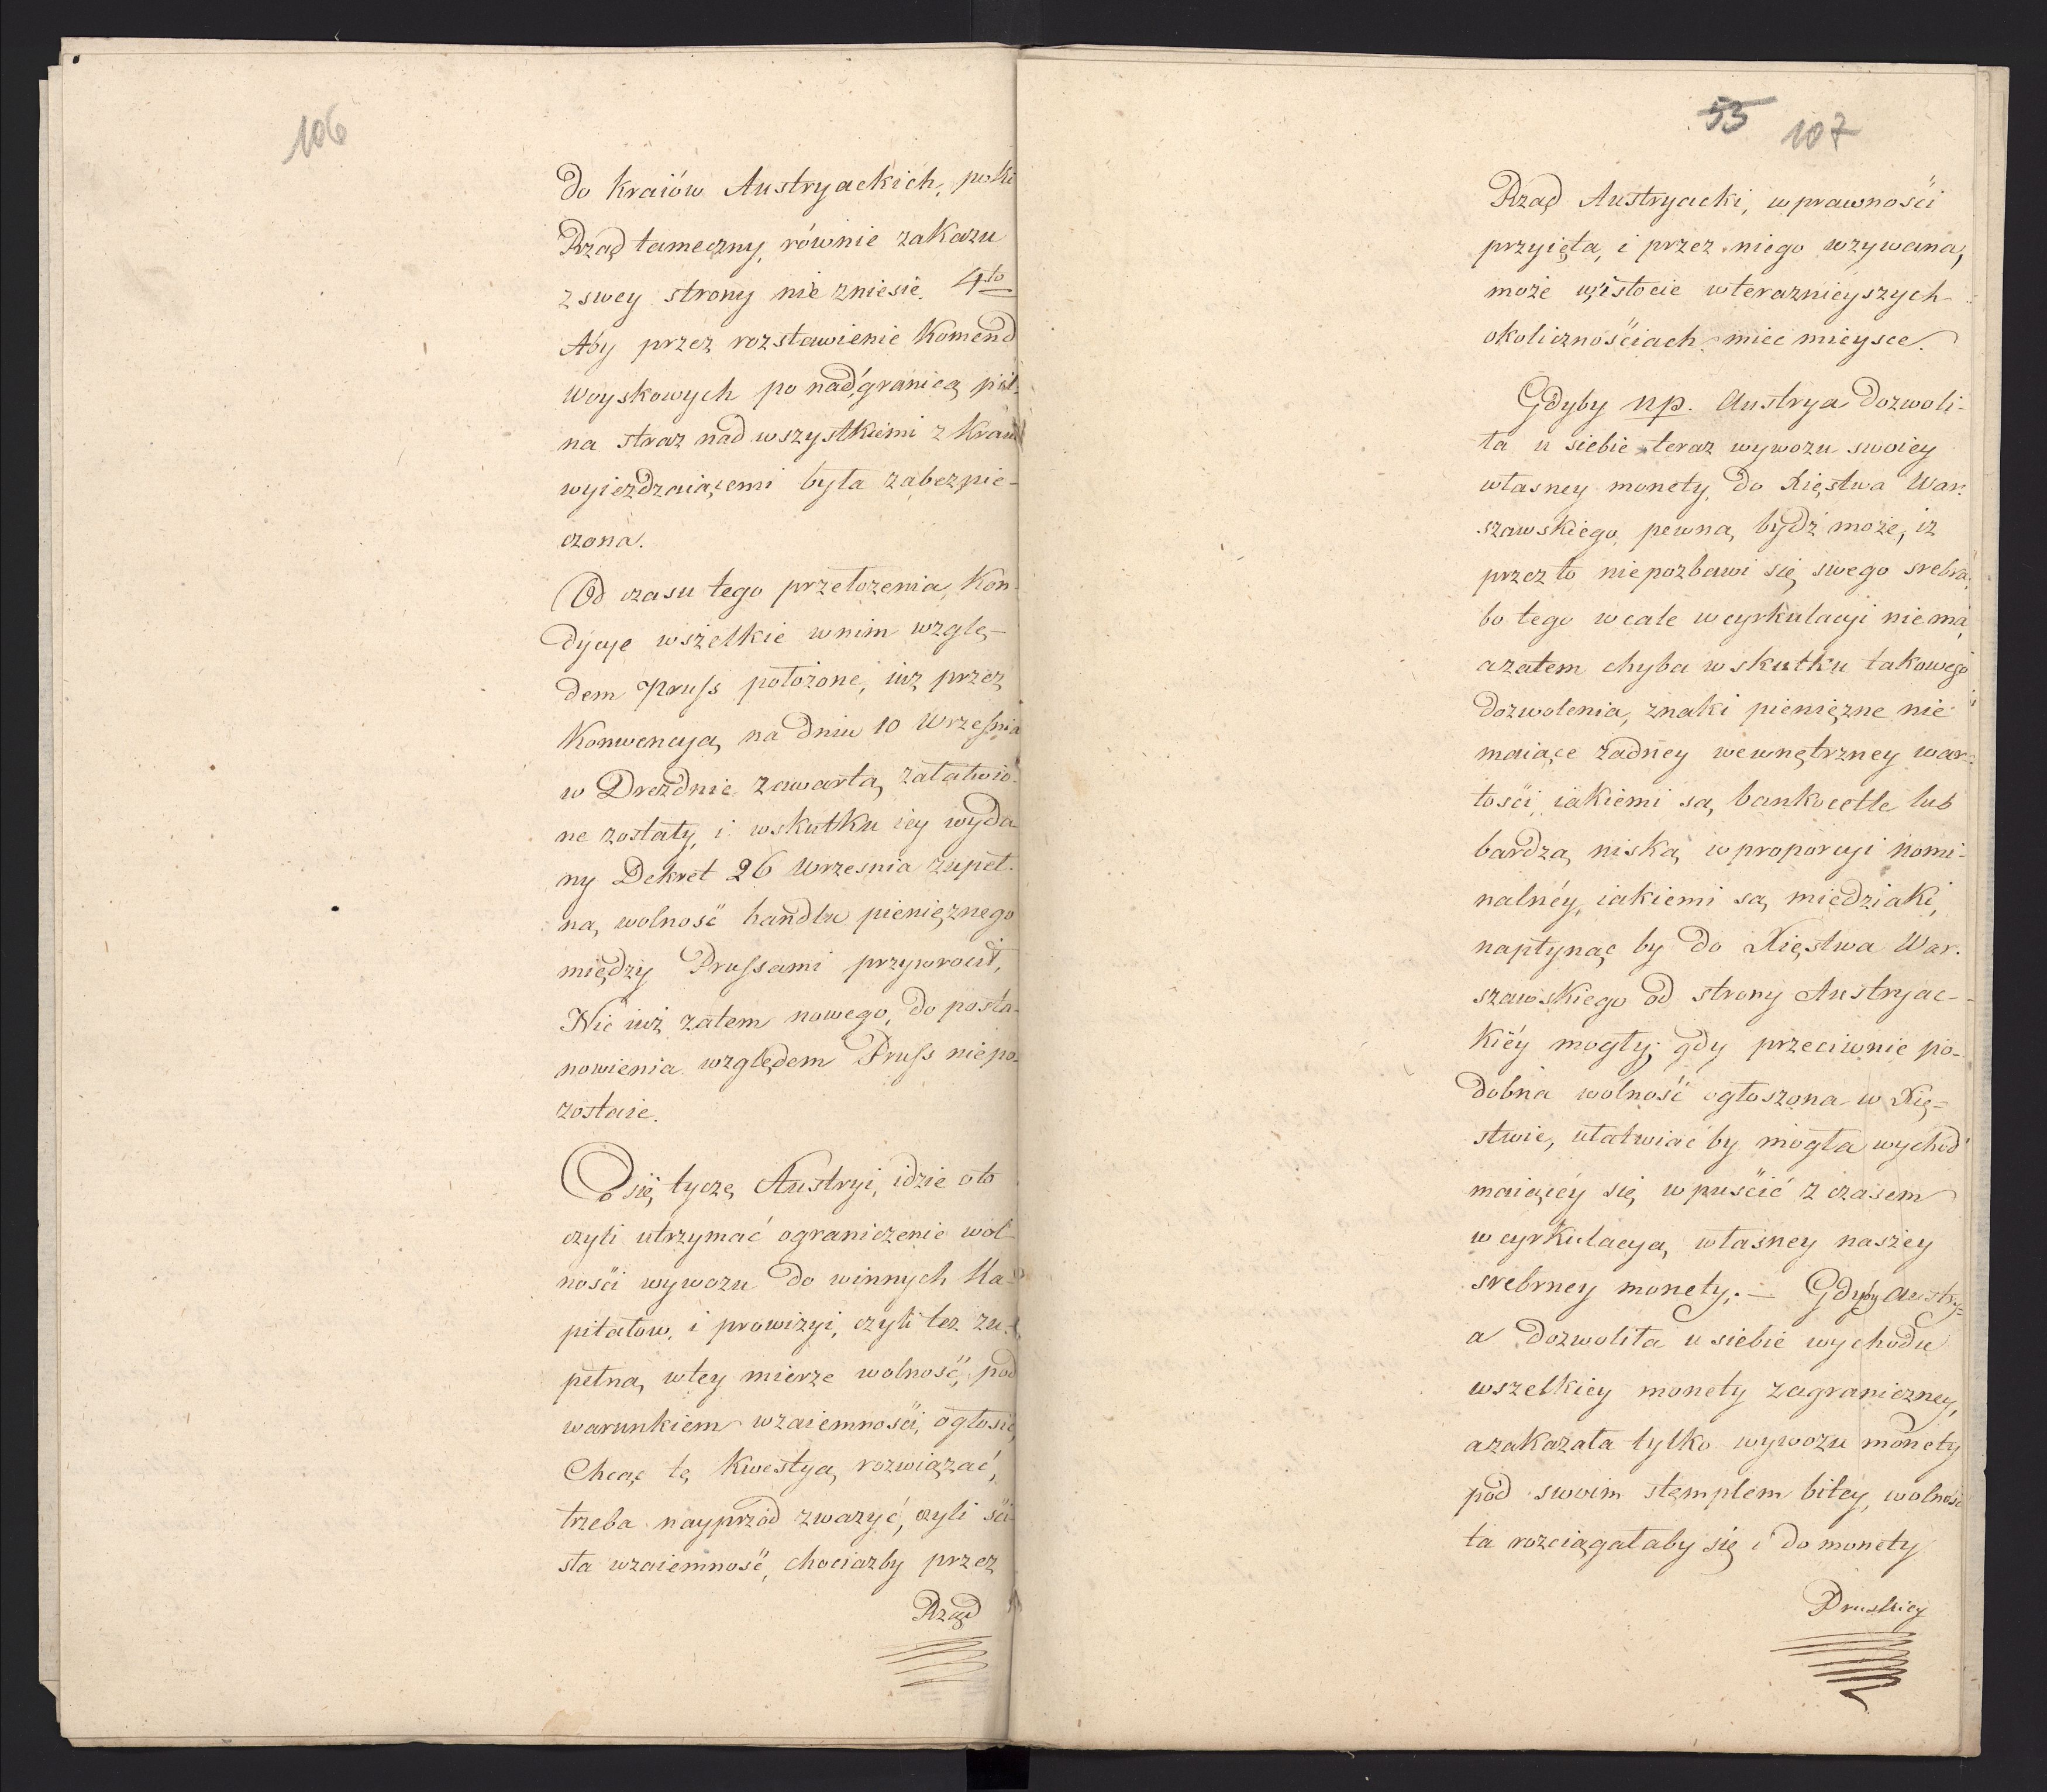 106
do Kraiów Austryackich, poki
Rząd tameczny, równie zakazu
z swey strony nie zniesie. 4to
Aby przez rozstawienie Komend
Woyskowych po nad granicą pil-
na straz nad wszystkiemi z Kraiu
wyiezdzaiącemi była zabezpie-
czona.
Od czasu tego przełozenia, Kon-
dycye wszelkie w nim wzglę-
dem Pruss położone, iuż przez
Konwencyą na dniu 10 Września
w Dreźdnie zawartą, załatwio-
ne zostały, i wskutku iey wyda-
ny Dekret 26 Wrzesnia zupeł-
ną wolność handlu pieniężnego
między Prussami przywrocił,
Nic iuż zatem nowego, do posta-
nowienia względem Pruss niepo-
zostaie.
Co się tycze Austryi, idzie oto
czyli utrzymać ograniczenie wol-
ności wywozu do winnych Ka-
pitałow, i prowizyi, czyli tez zu-
pełną wtey mierze wolność, pod
warunkiem wzaiemności, ogłosić,
Chcąc tę Kwestyą rozwiązać,
trzeba nayprzód zwazyć, czyli ści-
sła wzaiemność, chociazby przez
Rząd
55 107
Rząd Austryacki, w prawności
przyięta, i przez niego wzywana,
może w istocie w teraznieyszych
okolicznościach miec mieysce.
Gdyby np. Austrya dozwoli-
ła u siebie teraz wywozu swoiey
własney monety do Xięstwa War-
szawskiego, pewną bydź może, iz
przez to niepozbawi się swego srebra,
bo tego wcale w cyrkulacyi niema,
a zatem chyba w skutku takowego
dozwolenia, znaki pieniężne nie
maiące żadney wewnętrzney war-
tości, iakiemi są bankocetle lub
bardzą niską w proporcyi nomi-
nalnéy, iakiemi są miedziaki,
napłynąc by do Xięstwa War-
szawskiego od strony Austryac-
kiéy mogły; gdy przeciwnie po-
dobna wolność ogłoszona w Xię-
stwie, ułatwiać by mogła wychod
maiącéy się wpuścić z czasem
w cyrkulacyą własney naszey
srebrney monety; — Gdyby Austry-
a dozwoliła u siebie wychodu
wszelkiey monety zagraniczney,
a zakazała tylko wywozu monety
pód swoim stęmplem bitey, wolność
ta rozciągałaby się i do monety
Pruskiey